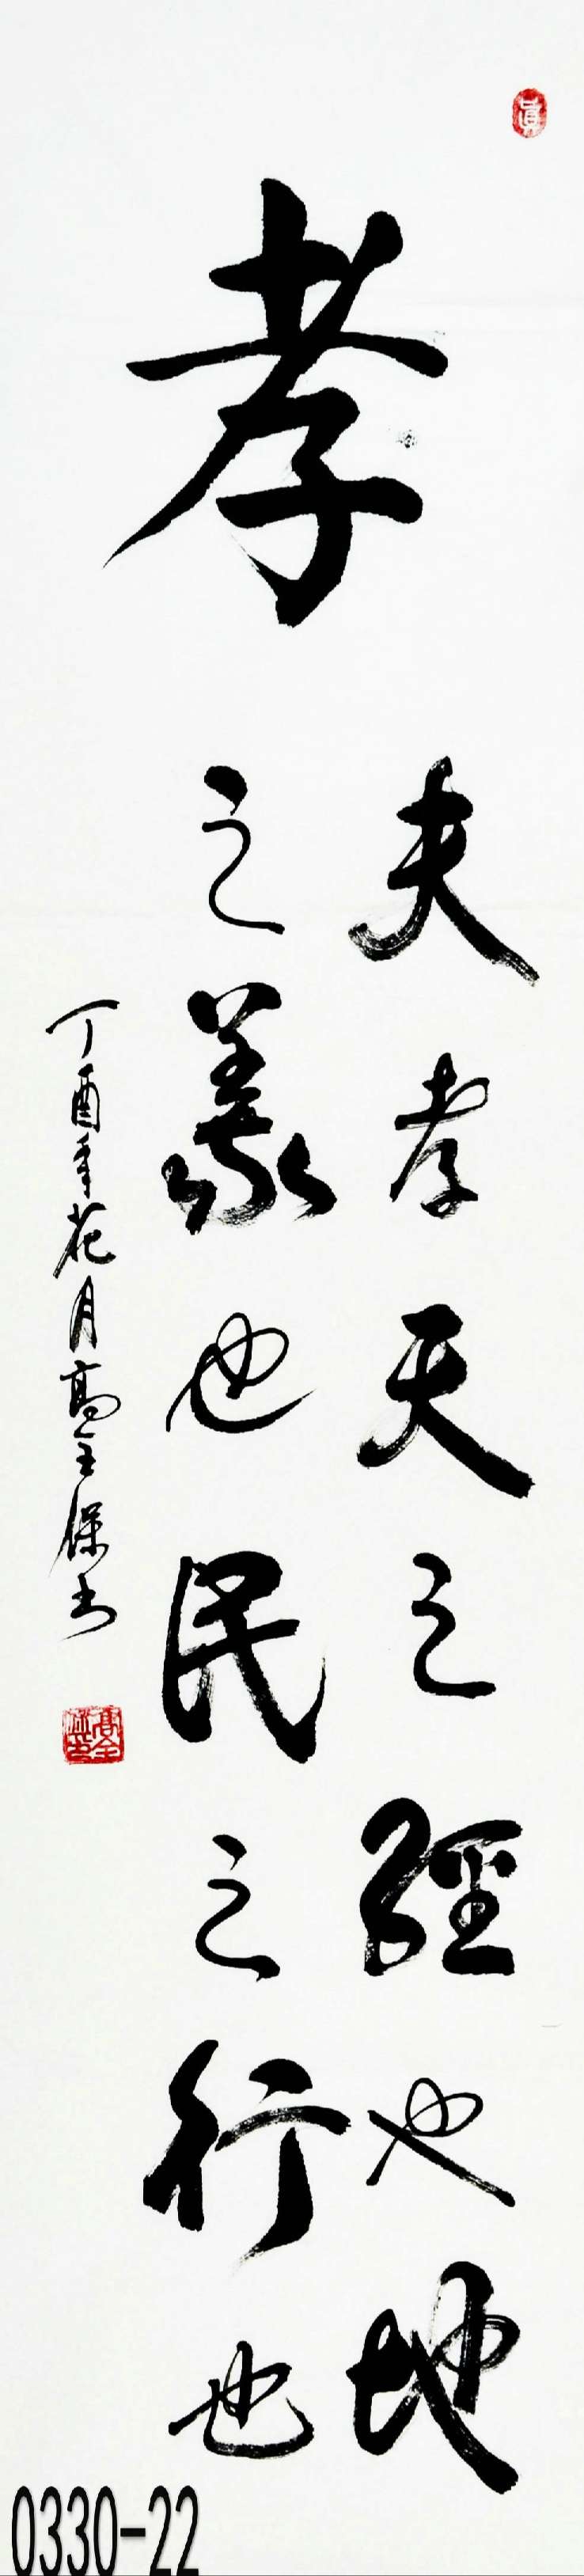 真
孝
夫孝天之經也地
之義也民之行也
丁酉年花月高全保书
0330-22